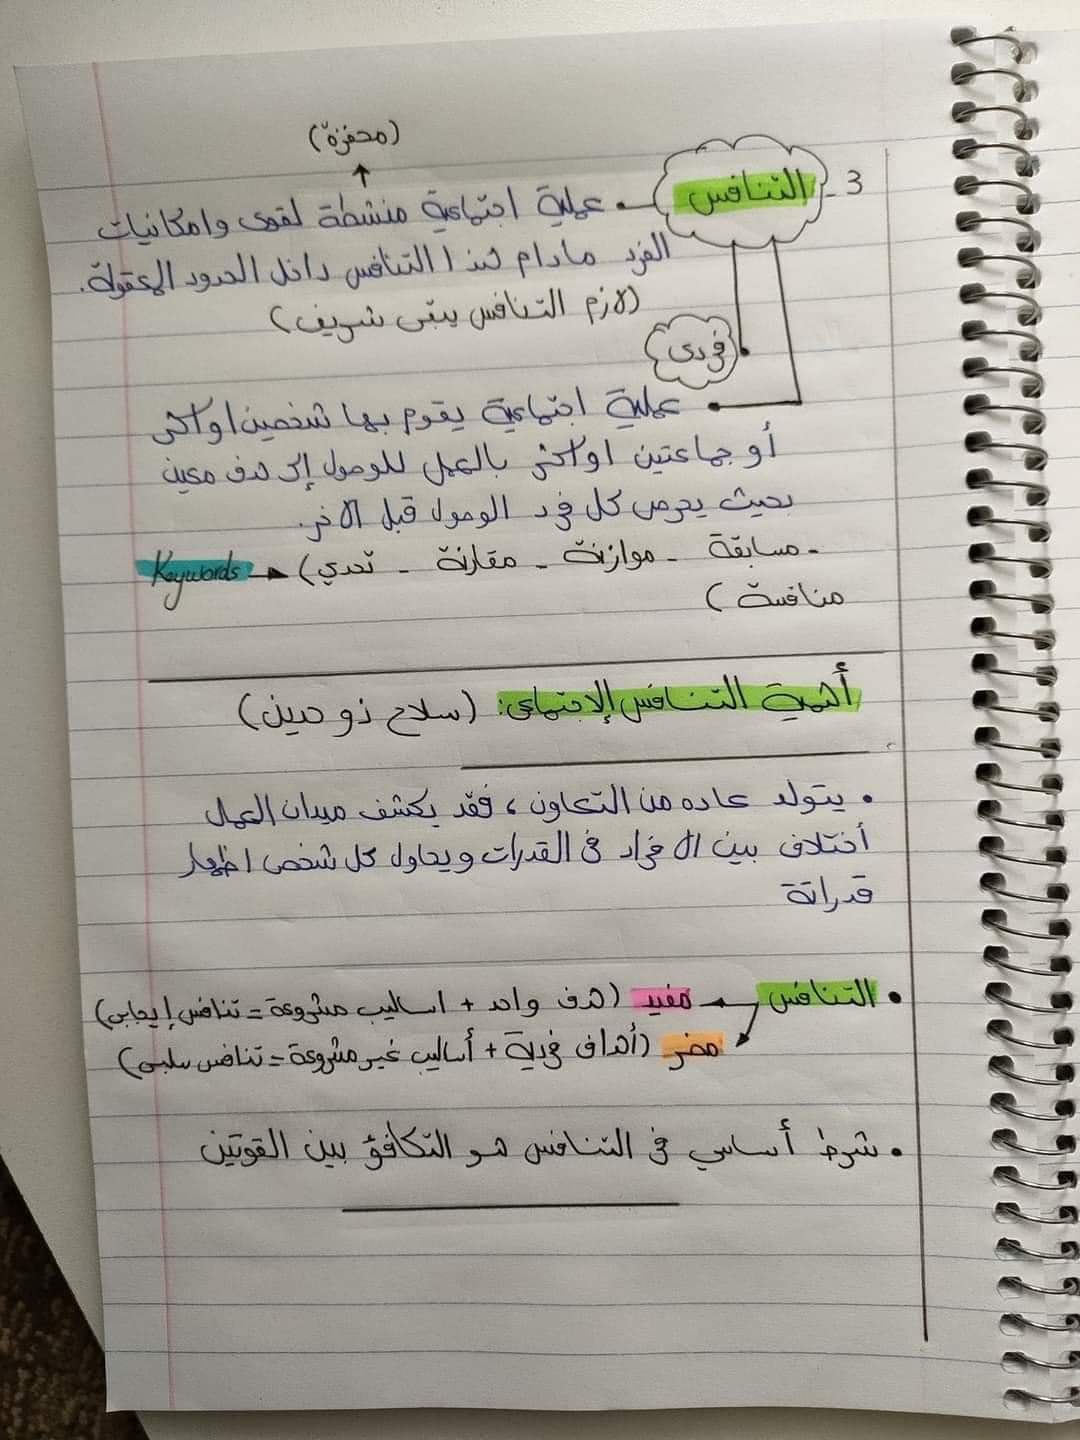 (محفزة)
3 - التنافس • عملية اجتماعية منشطة لقوى وامكانيات
الفرد مادام هذا التنافس داخل الحدود المعقولة.
(لازم التنافس يبقى شريف)
فردى
• عملية اجتماعية يقوم بها شخصين او اكثر
أو جماعتين او اكثر بالعمل للوصول إلى هدف معين
بحيث يحرص كل فرد الوصول قبل الاخر.
Keywords (مسابقة - موازنة - مقارنة - تحدي -
منافسة)
أهمية التنافس الإجتماعى: (سلاح ذو حدين)
• يتولد عاده من التعاون، فقد يكشف ميدان العمل
أختلاف بين الافراد فى القدرات ويحاول كل شخص اظهار
قدراتة
• التنافس مفيد (هدف واحد + اساليب مشروعة = تنافس إيجابى)
مضر (أهداف فردية + أساليب غير مشروعة = تنافس سلبى)
• شرط أساسي فى التنافس هو التكافؤ بين القوتين